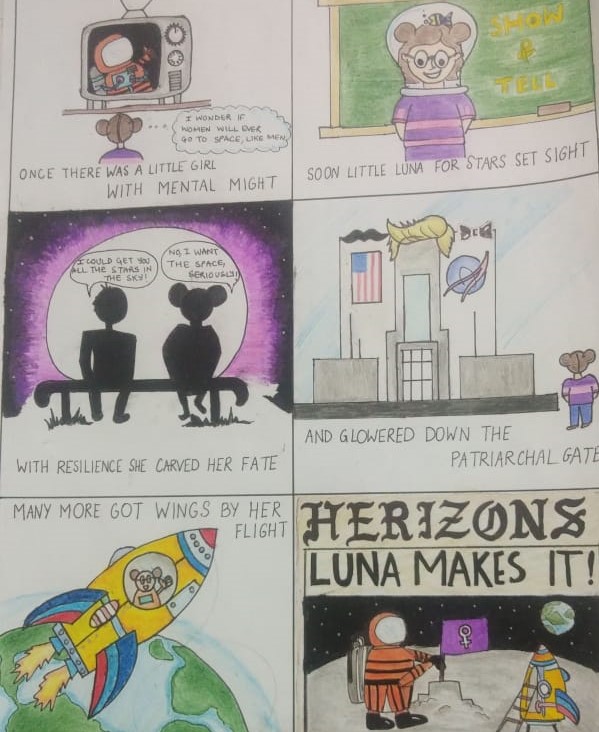 I WONDER IF
WOMEN WILL EVER
GO TO SPACE, LIKE MEN
ONCE THERE WAS A LITTLE GIRL
WITH MENTAL MIGHT
SHOW
&
TELL
SOON LITTLE LUNA FOR STARS SET SIGHT
I COULD GET YOU
ALL THE STARS IN
THE SKY!
NO, I WANT
THE SPACE,
SERIOUSLY!
WITH RESILIENCE SHE CARVED HER FATE
AND GLOWERED DOWN THE
PATRIARCHAL GATE
MANY MORE GOT WINGS BY HER
FLIGHT
HERIZONS
LUNA MAKES IT!